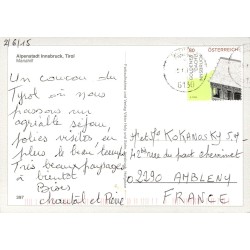 2/6/15
Alpenstadt Innsbruck, Tirol
Mariahilf
Un coucou du
Tyrol où nous
passons un
agréable séjour,
jolies visites en
plus le beau temps
Très beaux paysages
à bientôt
Bises
chantal et Pierre
387
ÖSTERREICH
6130
KOKANOSKY
rue du pont cheminet
02290 AMBLENY
FRANCE